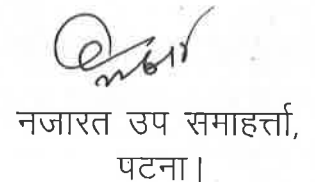 नजारत उप समाहर्त्ता,
पटना।